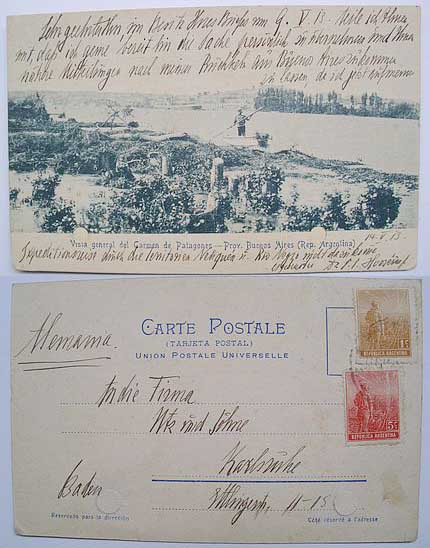 Sehr geehrter Herr, im Besitz Ihres Briefes vom 9. V. 13. teile ich Ihnen
mit, daß ich gerne bereit bin die Sache persönlich zu übernehmen und Ihnen
nähere Mitteilungen nach meiner Rückkehr in Buenos Aires zukommen
zu lassen, da ich jetzt
Vista general del Carmen de Patagones — Prov. Buenos Aires (Rep. Argentina)
14. V. 13.
durch die Territorien
Dr.
Alemania.
CARTE POSTALE
(TARJETA POSTAL)
UNION POSTALE UNIVERSELLE
1c
REPUBLICA ARGENTINA
5c
REPUBLICA ARGENTINA
An die Firma
und Söhne
Karlsruhe
Baden
Ettlingerstr. 11-15
Reservado para la dirección
Côté réservé à l'adresse